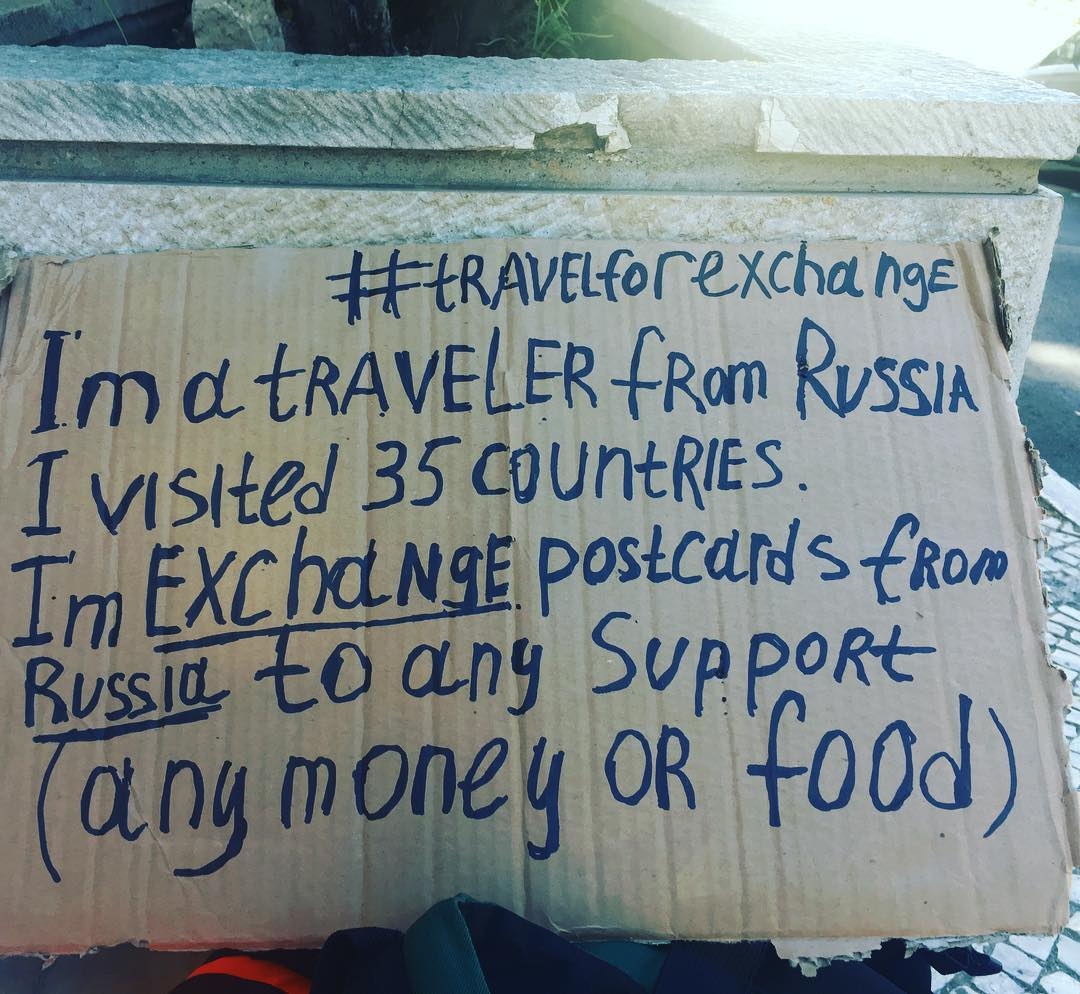 #tRAVELforexchangE
I'm a tRAVELER fRom RUSSIA
I visited 35 COUntRIES.
Im EXChaNgE postcards fRom
RUSSIa to any SuppoRt
(any money OR food)